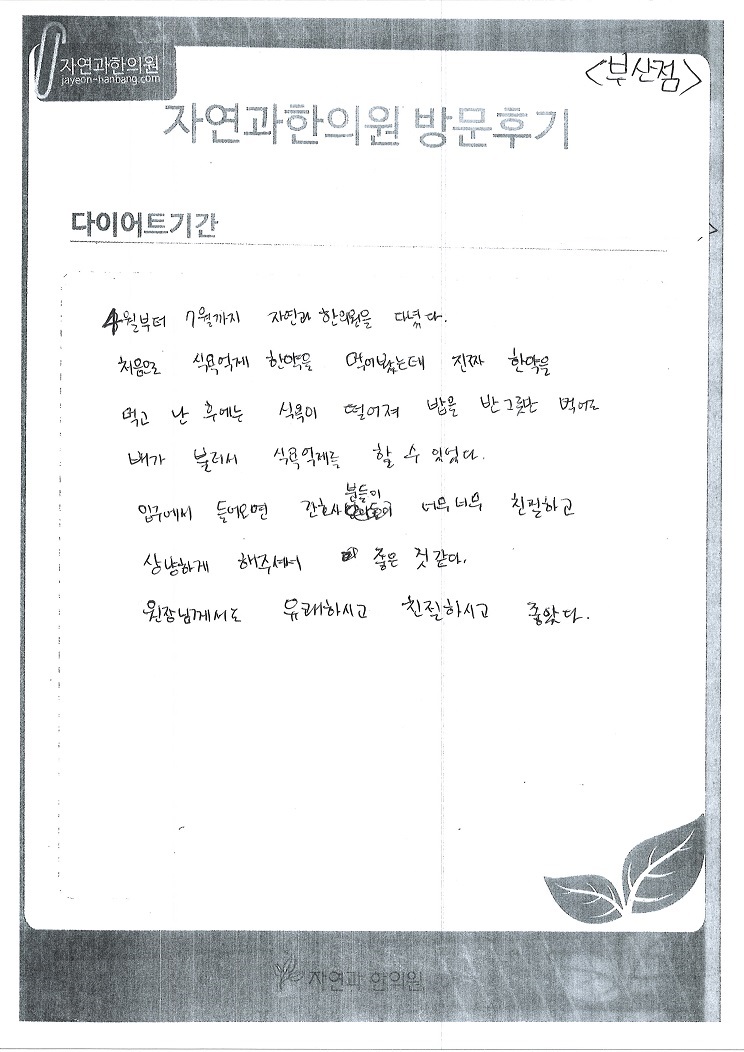 자연과한의원
jayeon-hanbang.com
<부산점>
자연과한의원 방문후기
다이어트기간
4월부터 7월까지 자연과 한의원을 다녔다.
처음으로 식욕억제 한약을 먹어봤는데 진짜 한약을
먹고 난 후에는 식욕이 떨어져 밥을 반그릇만 먹어도
배가 불러서 식욕억제를 할 수 있었다.
입구에서 들어오면 간호사분들이 너무너무 친절하고
상냥하게 해주셔서 좋은 것 같다.
원장님께서도 유쾌하시고 친절하시고 좋았다.
자연과 한의원